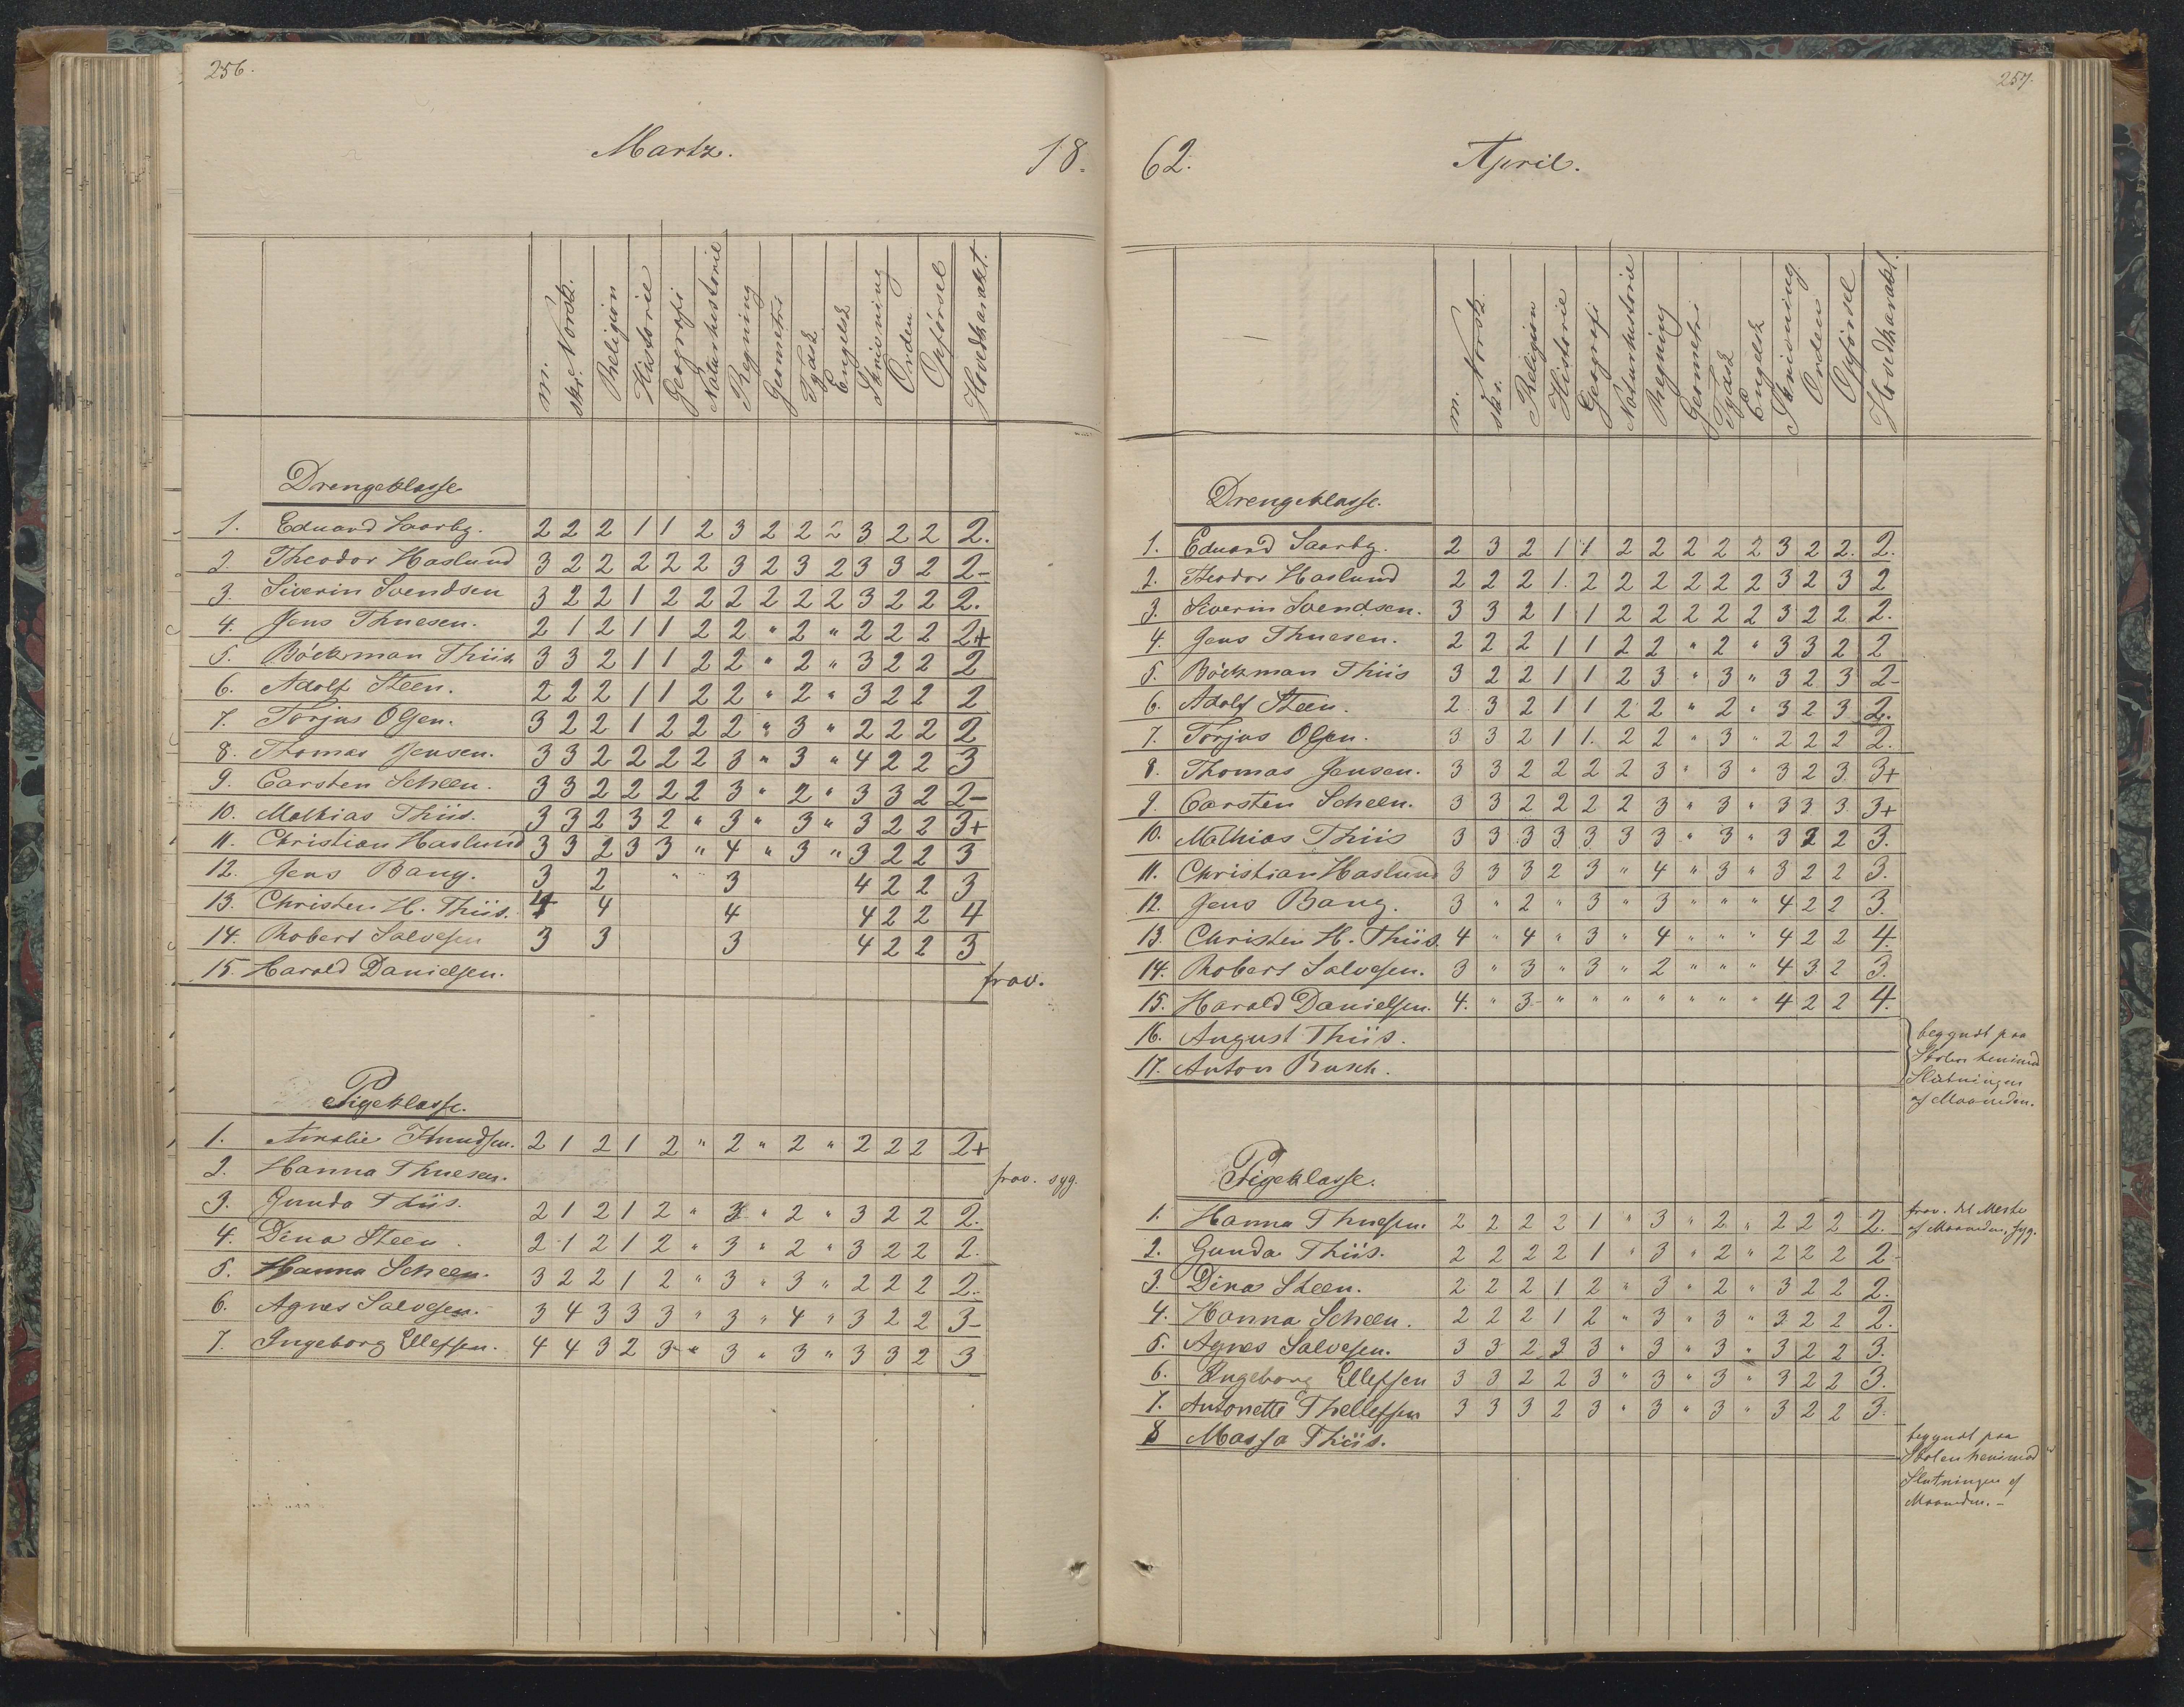 256.
Martz.
18.
m. Norsk.
skr.
Religion
Historie
Geografi
Naturhistorie
Regning
Geometri
Tydsk
Engelsk
Skrivning
Orden
Opførsel
Hovedkarakt.
Drengeklasse
1. Eduard Saarby. 2 2 2 1 1 2 3 2 2 2 3 2 2 2.
2. Theodor Haslund 3 2 2 2 2 2 3 2 3 2 3 3 2 2-
3. Siverin Svendsen 3 2 2 1 2 2 2 2 2 2 3 2 2 2.
4. Jens Thuesen. 2 1 2 1 1 2 2 " 2 " 2 2 2 2+
5. Böckman Thiis 3 3 2 1 1 2 2 " 2 " 3 2 2 2
6. Adolf Steen. 2 2 2 1 1 2 2 " 2 " 3 2 2 2
7. Torjus Olsen. 3 2 2 1 2 2 2 " 3 " 2 2 2 2
8. Thomas Jensen. 3 3 2 2 2 2 3 " 3 " 4 2 2 3
9. Carsten Scheen. 3 3 2 2 2 2 3 " 2 " 3 3 2 2-
10. Mathias Thiis. 3 3 2 3 2 " 3 " 3 " 3 2 2 3+
11. Christian Haslund 3 3 2 3 3 " 4 " 3 " 3 2 2 3
12. Jens Bang. 3 2 " 3 4 2 2 3
13. Christen H. Thiis. 4 4 4 4 2 2 4
14. Robert Salvesen 3 3 3 4 2 2 3
15. Harald Danielsen. frav.
Pigeklasse.
1. Amalie Knudsen. 2 1 2 1 2 " 2 " 2 " 2 2 2 2+
2. Hanna Thuesen. frav. syg.
3. Gunda Thiis. 2 1 2 1 2 " 3 " 2 " 3 2 2 2.
4. Dina Steen. 2 1 2 1 2 " 3 " 2 " 3 2 2 2.
5. Hanna Scheen. 3 2 2 1 2 " 3 " 3 " 2 2 2 2.
6. Agnes Salvesen. 3 4 3 3 3 " 3 " 4 " 3 2 2 3-
7. Ingeborg Ellefsen. 4 4 3 2 3 " 3 " 3 " 3 3 2 3
257.
62.
April.
m. Norsk.
skr.
Religion
Historie
Geografi
Naturhistorie
Regning
Geometri
Tydsk
Engelsk
Skrivning
Orden
Opførsel
Hovedkarakt.
Drengeklasse.
1. Eduard Saarby. 2 3 2 1 1 2 2 2 2 2 3 2 2. 2.
2. Theodor Haslund 2 2 2 1. 2 2 2 2 2 2 3 2 3 2
3. Siverin Svendsen. 3 3 2 1 1 2 2 2 2 2 3 2 2 2.
4. Jens Thuesen. 2 2 2 1 1 2 2 " 2 " 3 3 2 2
5. Böckman Thiis 3 2 2 1 1 2 3 " 3 " 3 2 3 2-
6. Adolf Steen. 2 3 2 1 1 2 2 " 2 " 3 2 3 2.
7. Torjus Olsen. 3 3 2 1 1. 2 2 " 3 " 2 2 2 2.
8. Thomas Jensen. 3 3 2 2 2 2 3 " 3 " 3 2 3 3+
9. Carsten Scheen. 3 3 2 2 2 2 3 " 3 " 3 3 3 3+
10. Mathias Thiis 3 3 3 3 3 3 3 " 3 " 3 2 2 3.
11. Christian Haslund 3 3 3 2 3 " 4 " 3 " 3 2 2 3.
12. Jens Bang. 3 " 2 " 3 " 3 " " " 4 2 2 3.
13. Christen H. Thiis. 4 " 4 " 3 " 4 " " " 4 2 2 4.
14. Robert Salvesen. 3 " 3 " 3 " 2 " " " 4 3 2 3.
15. Harald Danielsen. 4. " 3 " " " " " " " 4 2 2 4.
16. August Thiis.
17. Anton Busch.
begyndt paa
Skolen henimod
Slutningen
af Maaneden.
Pigeklasse.
1. Hanna Thuesen. 2 2 2 2 1 " 3 " 2 " 2 2 2 2.
frav. det Meste
af Maaneden, syg.
2. Gunda Thiis. 2 2 2 2 1 " 3 " 2 " 2 2 2 2
3. Dina Steen. 2 2 2 1 2 " 3 " 2 " 3 2 2 2.
4. Hanna Scheen. 2 2 2 1 2 " 3 " 3 " 3 2 2 2.
5. Agnes Salvesen. 3 3 2 3 3 " 3 " 3 " 3 2 2 3.
6. Ingeborg Ellefsen 3 3 2 2 3 " 3 " 3 " 3 2 2 3.
7. Antonette Thellefsen 3 3 3 2 3 " 3 " 3 " 3 2 2 3.
8 Massa Thiis.
begyndt paa
Skolen henimod
Slutningen af
Maaneden. -